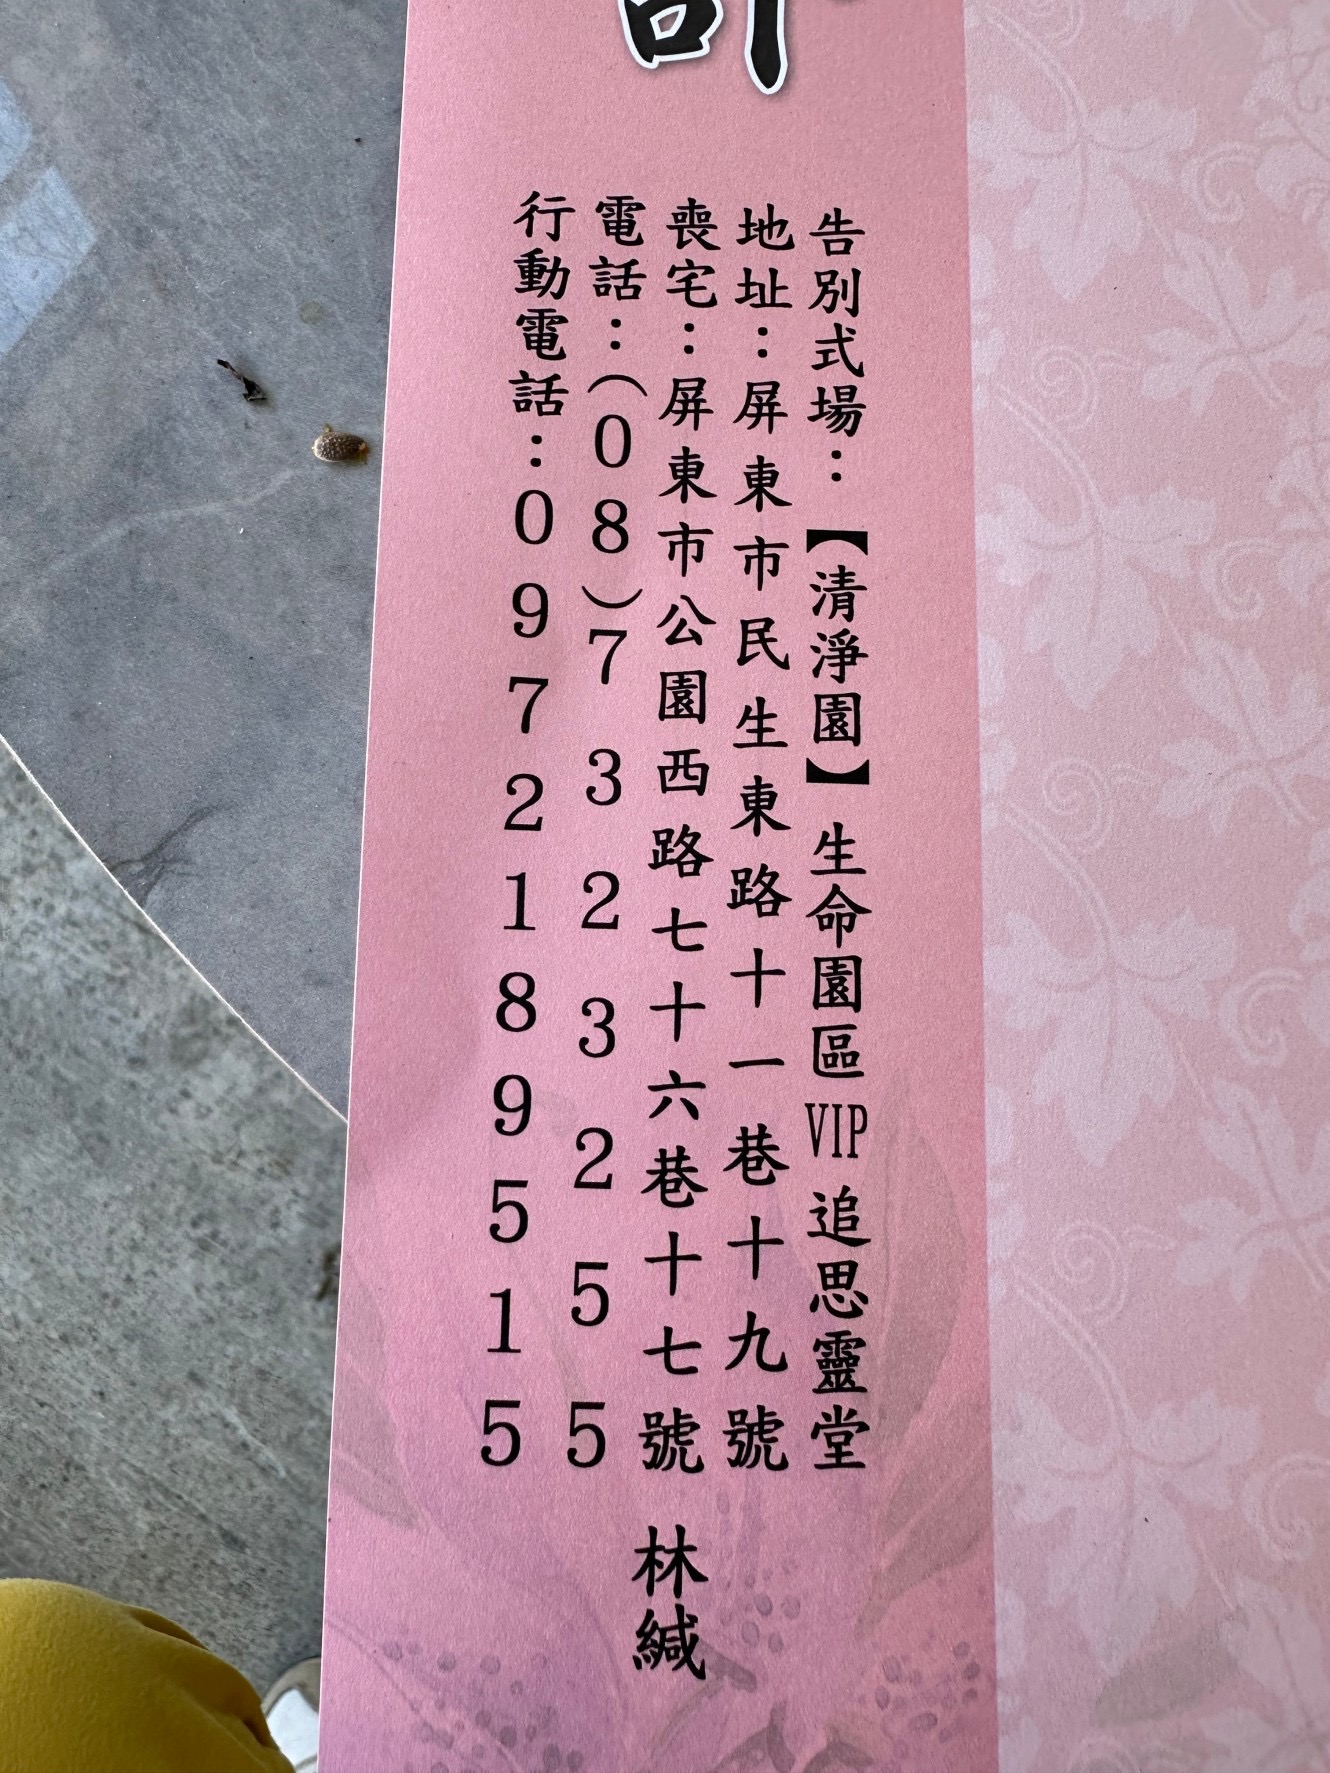 告別式場：【清淨園】生命園區VIP追思靈堂
地址：屏東市民生東路十一巷十九號
喪宅：屏東市公園西路七十六巷十七號 林緘
電話：（08）7323255
行動電話：0972189515